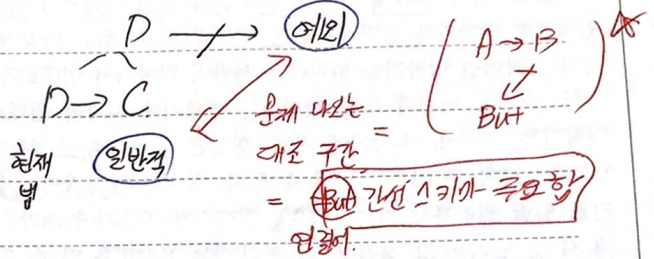 D → 예외
D → C
현재
법
일반적
문제 나오는
대조 구간
=
A → B
But
= But 간선 스키마 주요함
연결어.